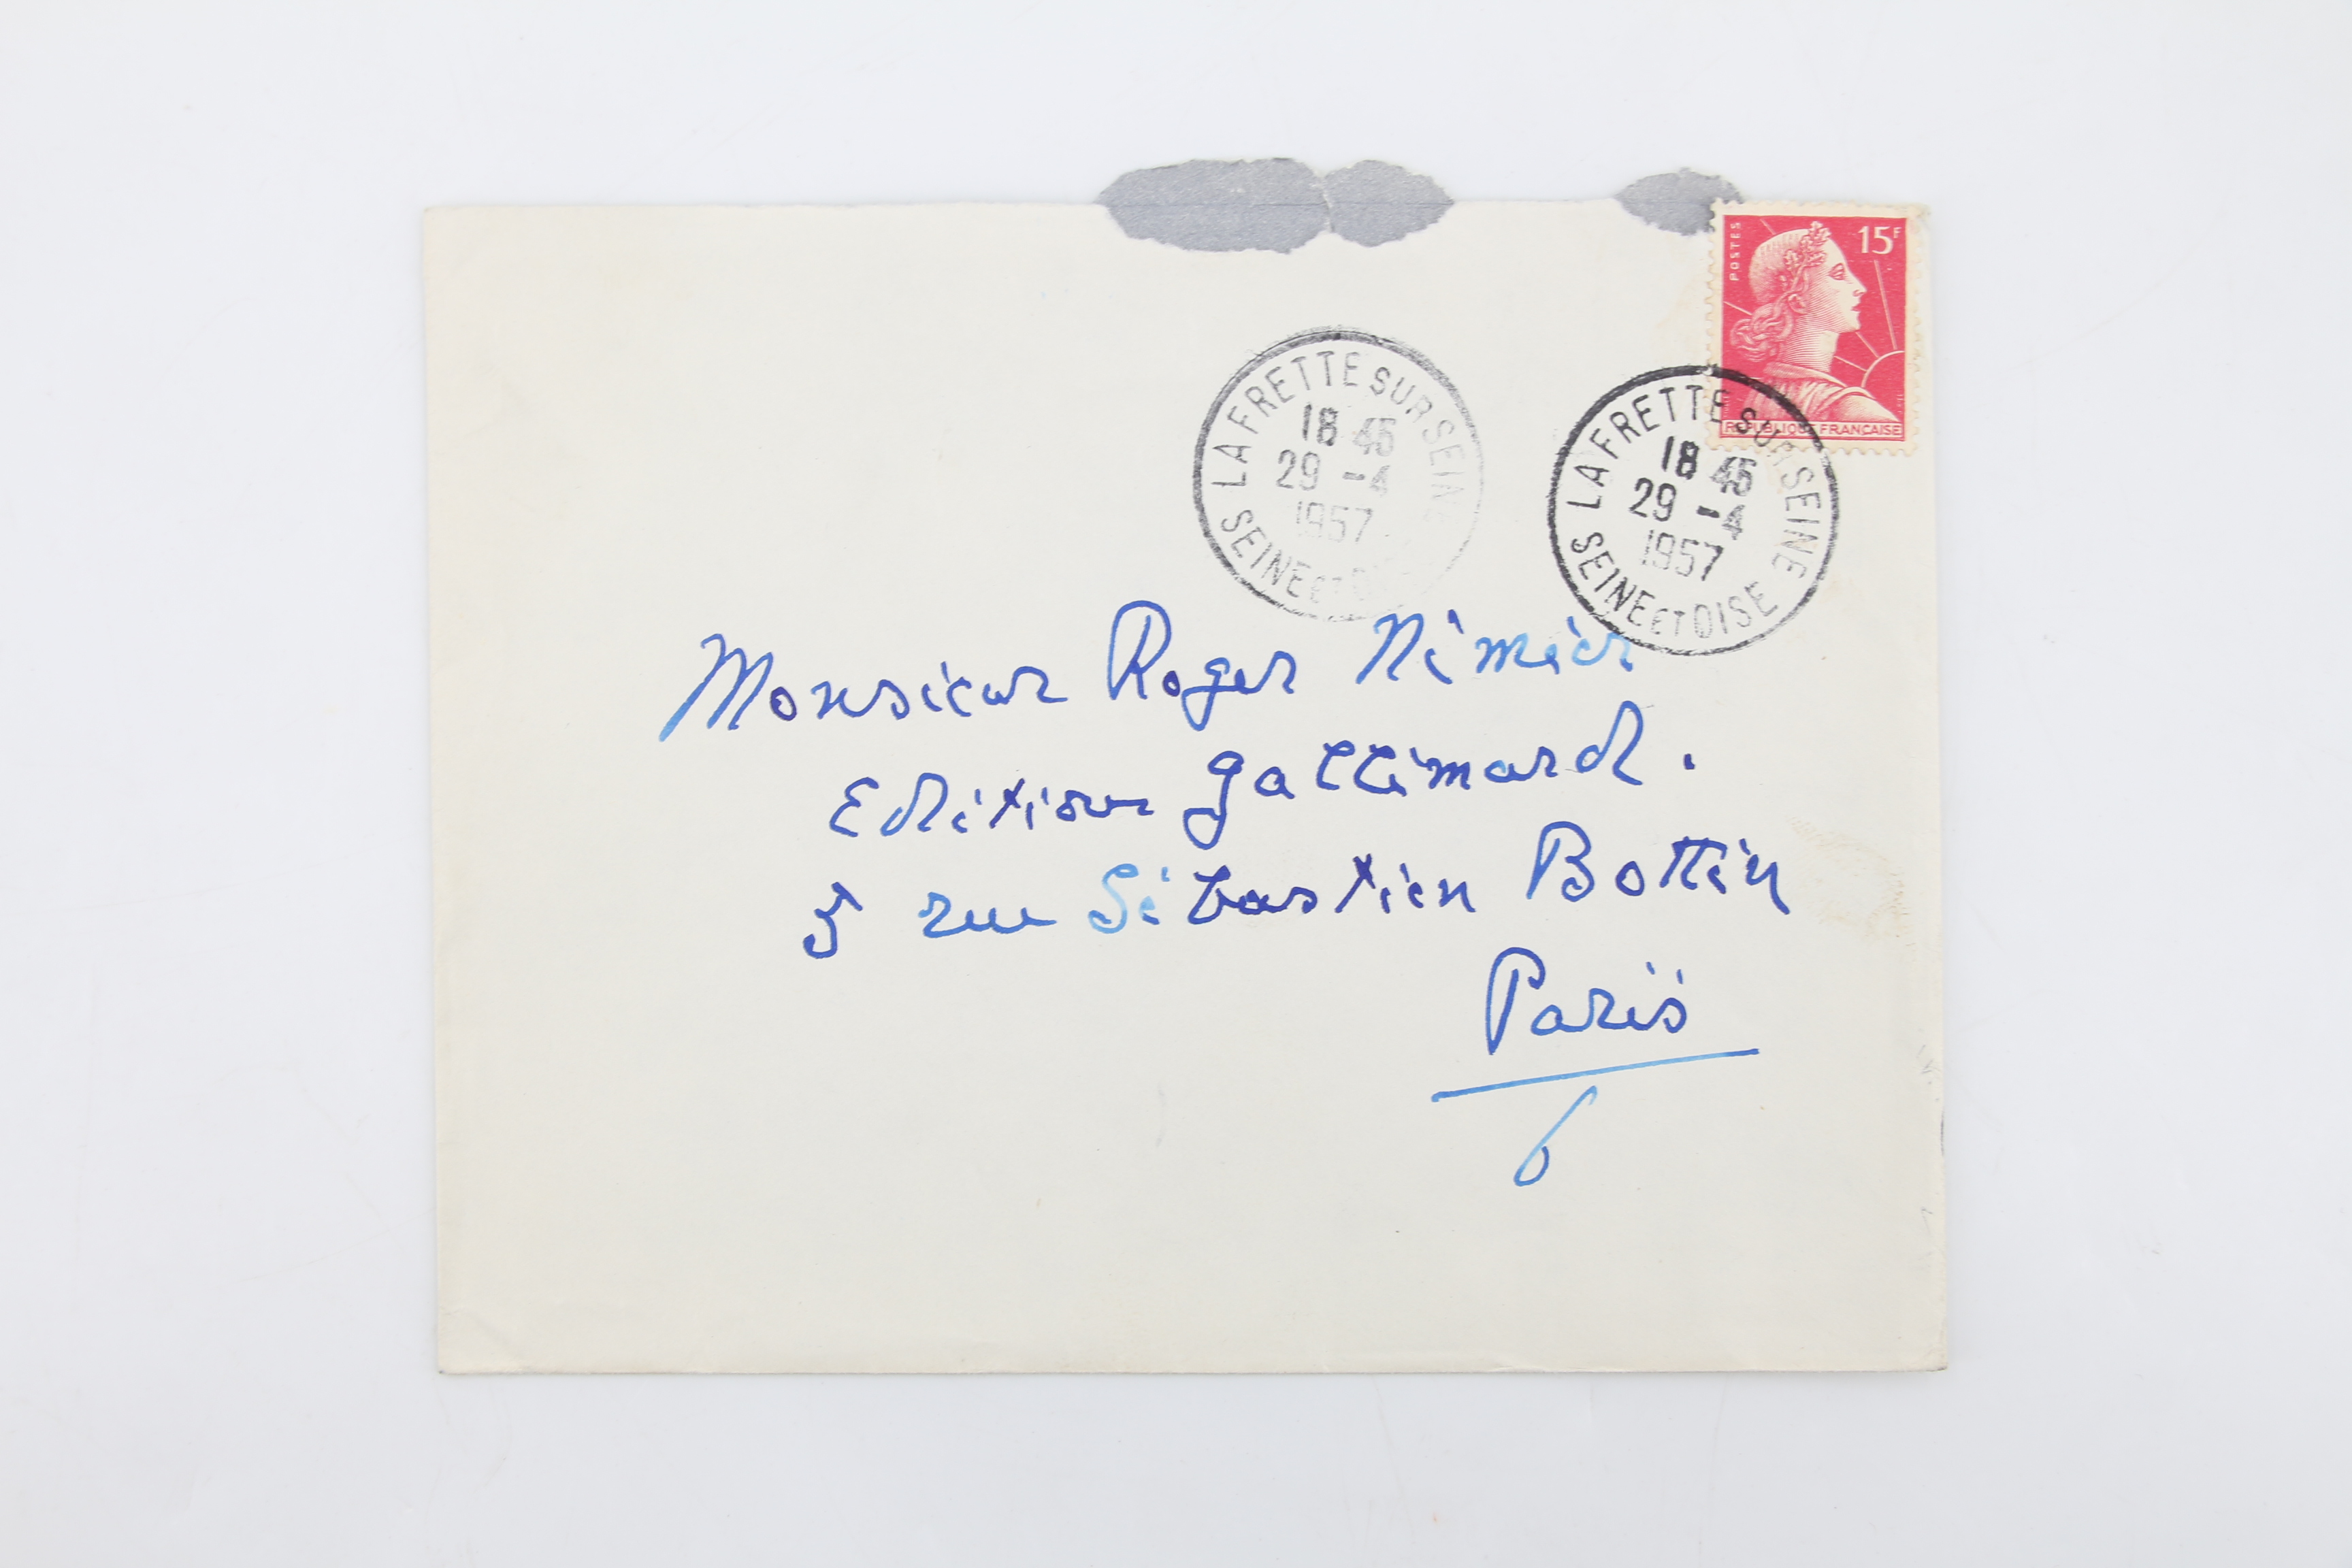 POSTES
15F
REPUBLIQUE FRANCAISE
LA FRETTE SUR SEINE
18 45
29 -4
1957
SEINE ET OISE
LA FRETTE SUR SEINE
18 45
29 -4
1957
SEINE ET OISE
Monsieur Roger Nimier
Edition Gallimard.
5 rue Sébastien Bottin
Paris
6